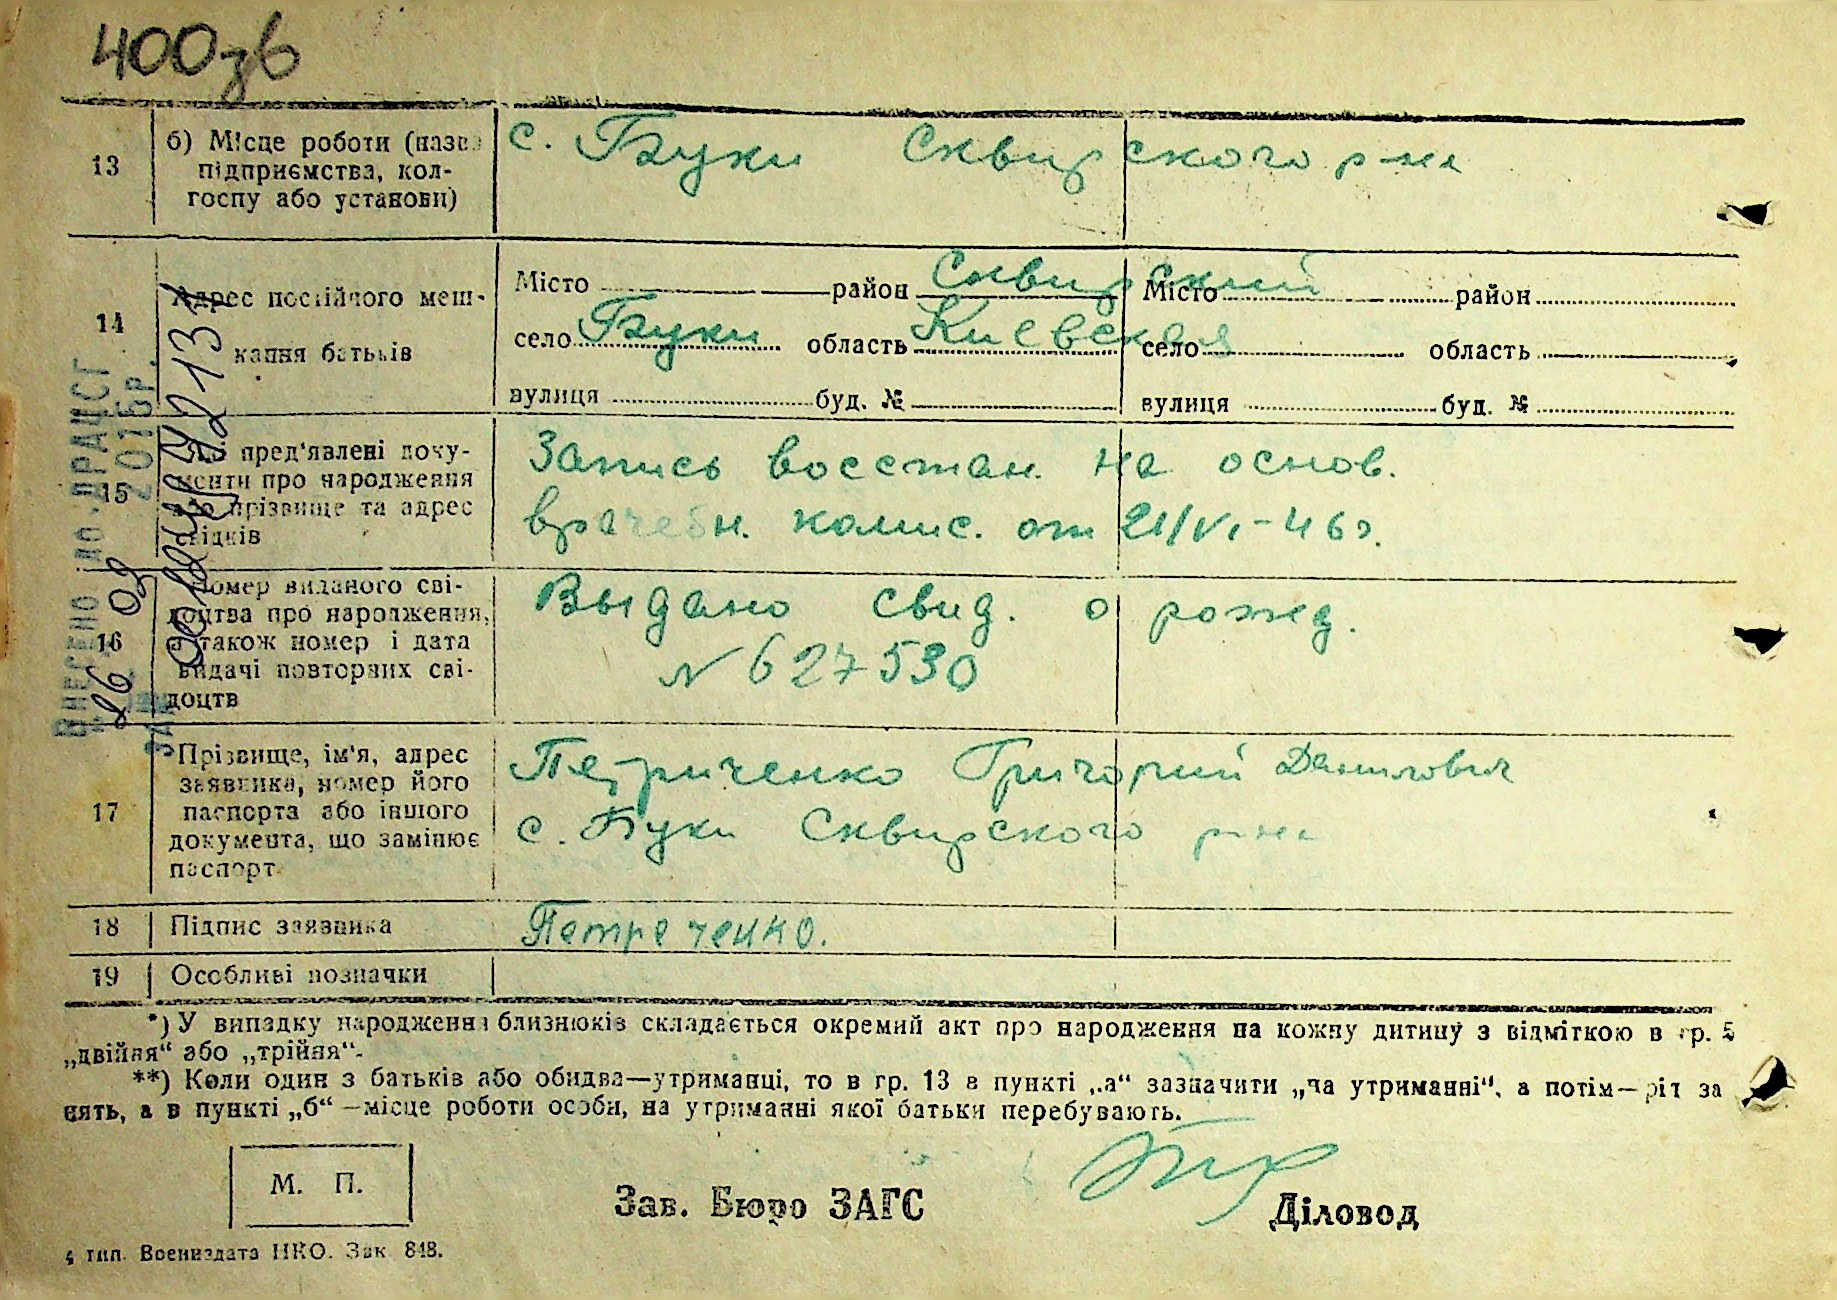 400зв
13
б) Місце роботи (назва
підприємства, кол-
госпу або установи)
с. Буки Сквирского р-на
14
Адрес постійного меш-
кання батьків
Місто район Сквирский
село Буки область Киевская
вулиця буд. №
Місто район
село область
вулиця буд. №
15
Які пред'явлені доку-
менти про народження
або прізвище та адрес
свідків
Запись восстан. на основ.
врачебн. комис. от 21/VI-46г.
16
Номер виданого сві-
доцтва про народження,
а також номер і дата
видачі повторних сві-
доцтв
Выдано свид. о рожд.
N 627530
17
Прізвище, ім'я, адрес
заявника, номер його
паспорта або іншого
документа, що замінює
паспорт
Петриченко Григорий Данилович
с. Буки Сквирского р-на
18
Підпис заявника
Петреченко.
19
Особливі позначки
ВНЕСЕНО ДО ДРАЦСГ
26 03 2015р.
*) У випадку народження близнюків складається окремий акт про народження на кожну дитину з відміткою в гр. 5
„двійня“ або „трійня“.
**) Коли один з батьків або обидва—утриманці, то в гр. 13 в пункті „а“ зазначити „на утриманні“, а потім—ріт за
нять, а в пункті „б“—місце роботи особи, на утриманні якої батьки перебувають.
М. П.
Зав. Бюро ЗАГС
Діловод
4 тип. Воениздата НКО. Зак. 848.